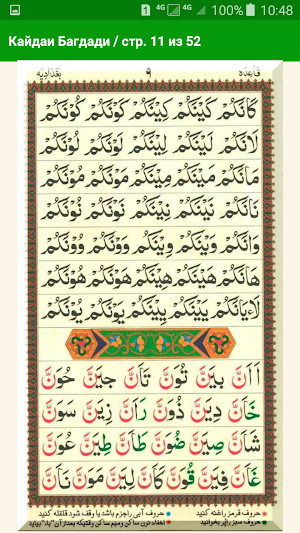 10:48
4G 4G 100%
Кайдаи Багдади / стр. 11 из 52
قاعده ٩ بغدادیه
كَانَكُمْ كَيْنَكُمْ كِيْنَكُمْ كَوْنَكُمْ كُوْنَكُمْ
لَانَكُمْ لَيْنَكُمْ لِيْنَكُمْ لَوْنَكُمْ لُوْنَكُمْ
مَانَكُمْ مَيْنَكُمْ مِيْنَكُمْ مَوْنَكُمْ مُوْنَكُمْ
نَانَكُمْ نَيْنَكُمْ نِيْنَكُمْ نَوْنَكُمْ نُوْنَكُمْ
وَانَكُمْ وَيْنَكُمْ وِيْنَكُمْ وَوْنَكُمْ وُوْنَكُمْ
هَانَكُمْ هَيْنَكُمْ هِيْنَكُمْ هَوْنَكُمْ هُوْنَكُمْ
يَيْنَكُمْ يِيْنَكُمْ يَوْنَكُمْ يُوْنَكُمْ
تَانَّ جِيْنَّ
خَانَّ دِيْنَّ ذُوْنَّ رَانَّ زِيْنَّ سَوْنَّ
شَانَّ صِيْنَّ ضُوْنَّ طَانَّ طِيْنَّ عُوْنَّ
غَانَّ فِيْنَّ قُوْنَّ كَانَّ لِيْنَّ مَوْنَّ نَانَّ
حروف قرمز را غنه کنید حروف آبی را جزم باشد یا وقف شود قلقله کنید
حروف سبز را پُر بخوانید